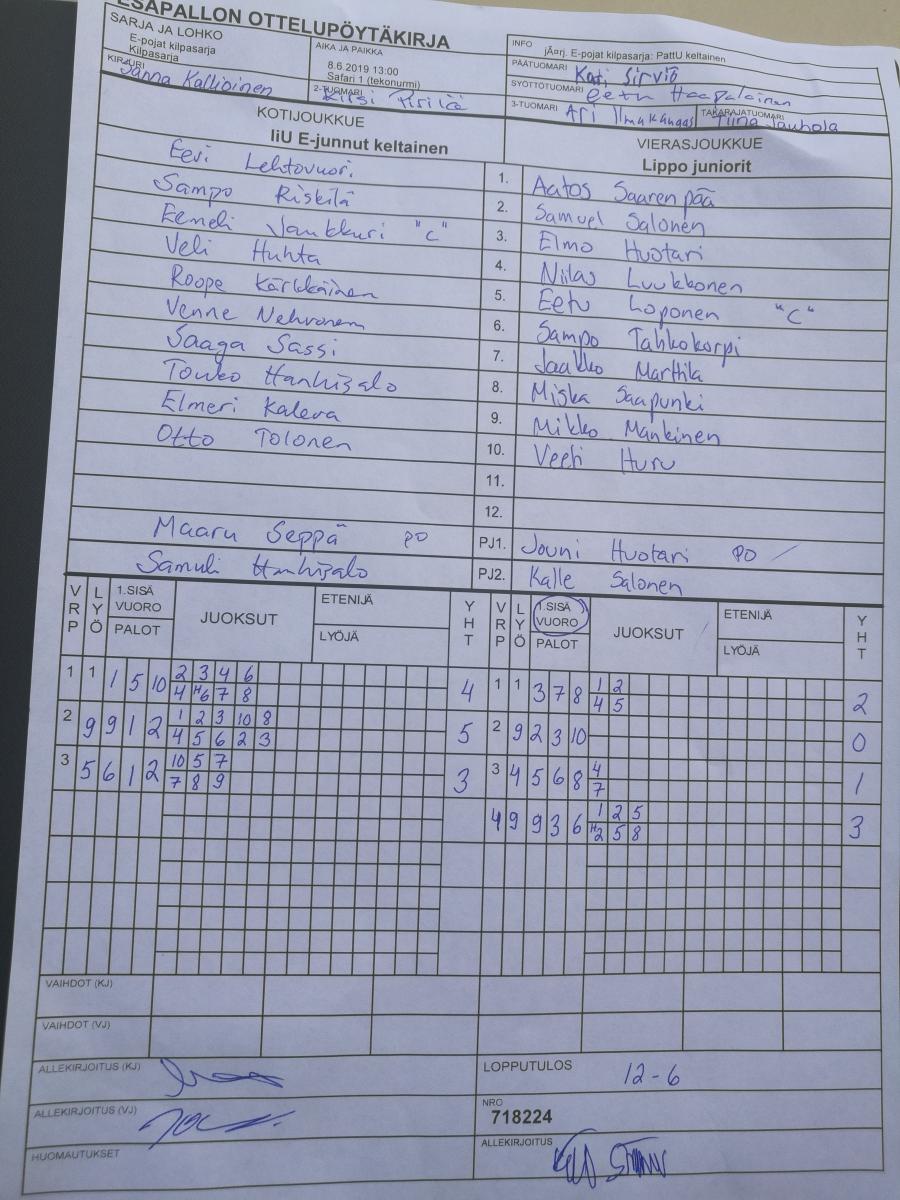 ESAPALLON OTTELUPÖYTÄKIRJA
SARJA JA LOHKO
E-pojat kilpasarja
Kilpasarja
AIKA JA PAIKKA
8.6.2019 13:00
Safari 1 (tekonurmi)
INFO
jÃ¤rj. E-pojat kilpasarja: PattU keltainen
PÄÄTUOMARI Kati Sirviö
SYÖTTÖTUOMARI Eetu Haapalainen
KIRJURI Sanna Kallioinen
2-TUOMARI Kirsi Pirilä
3-TUOMARI Ari Ilmakangas
TAKARAJATUOMARI Tiina Jauhola
KOTIJOUKKUE
IiU E-junnut keltainen
VIERASJOUKKUE
Lippo juniorit
Eevi Lehtovuori 1. Aatos Saarenpää
Sampo Riskilä 2. Samuel Salonen
Eemeli Jaukkuri "C" 3. Elmo Huotari
Veli Huhta 4. Niilas Luukkonen
Roope Kärkkäinen 5. Eetu Loponen "C"
Venne Nehvonen 6. Sampo Tahkokorpi
Saaga Sassi 7. Jaakko Marttila
Touko Hanhisalo 8. Miska Saapunki
Elmeri Kaleva 9. Mikko Mankinen
Otto Tolonen 10. Veeti Huru
11.
12.
Maaru Seppä PO PJ1. Jouni Huotari PO
Samuli Hanhisalo PJ2. Kalle Salonen
VRP LYÖ 1.SISÄ VUORO PALOT JUOKSUT ETENIJÄ LYÖJÄ YHT VRP LYÖ 1.SISÄ VUORO PALOT JUOKSUT ETENIJÄ LYÖJÄ YHT
1 1 1 5 10 2 3 4 6 4 1 1 3 7 8 1 2 2
4 H6 7 8 4 5
2 9 9 1 2 1 2 3 10 8 5 2 9 2 3 10 0
4 5 6 2 3
3 5 6 1 2 10 5 7 3 3 4 5 6 8 4 1
7 8 9 7
4 9 9 3 6 1 2 5 3
H2 5 8
VAIHDOT (KJ)
VAIHDOT (VJ)
ALLEKIRJOITUS (KJ)
LOPPUTULOS 12-6
ALLEKIRJOITUS (VJ)
NRO
718224
HUOMAUTUKSET
ALLEKIRJOITUS